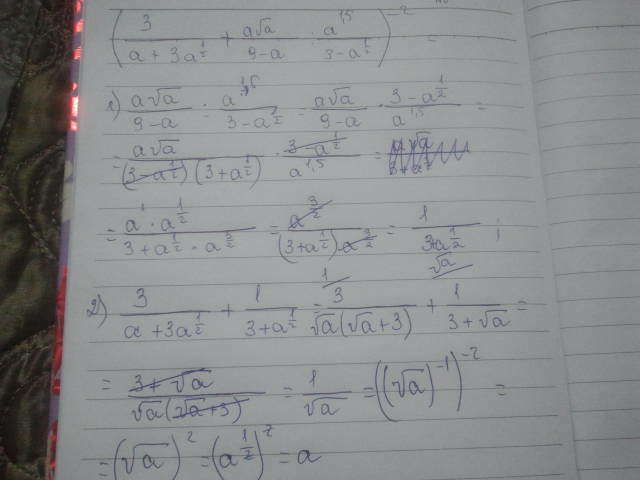 (3/(a + 3a^(1/2)) + a√a/(9-a) : a^(1,5)/(3-a^(1/2)))^(-2) =
1) a√a/(9-a) : a^(1,5)/(3-a^(1/2)) = a√a/(9-a) · (3-a^(1/2))/a^(1,5) =
= a√a/((3-a^(1/2))(3+a^(1/2))) · (3-a^(1/2))/a^(1,5) =
= a^1 · a^(1/2)/(3+a^(1/2) · a^(3/2)) = a^(3/2)/((3+a^(1/2)) · a^(3/2)) = 1/(3+a^(1/2)) ;
√a
2) 3/(a+3a^(1/2)) + 1/(3+a^(1/2)) = 3/(√a(√a+3)) + 1/(3+√a) =
= (3+√a)/(√a(√a+3)) = 1/√a = ((√a)^(-1))^(-2) =
= (√a)^2 = (a^(1/2))^2 = a